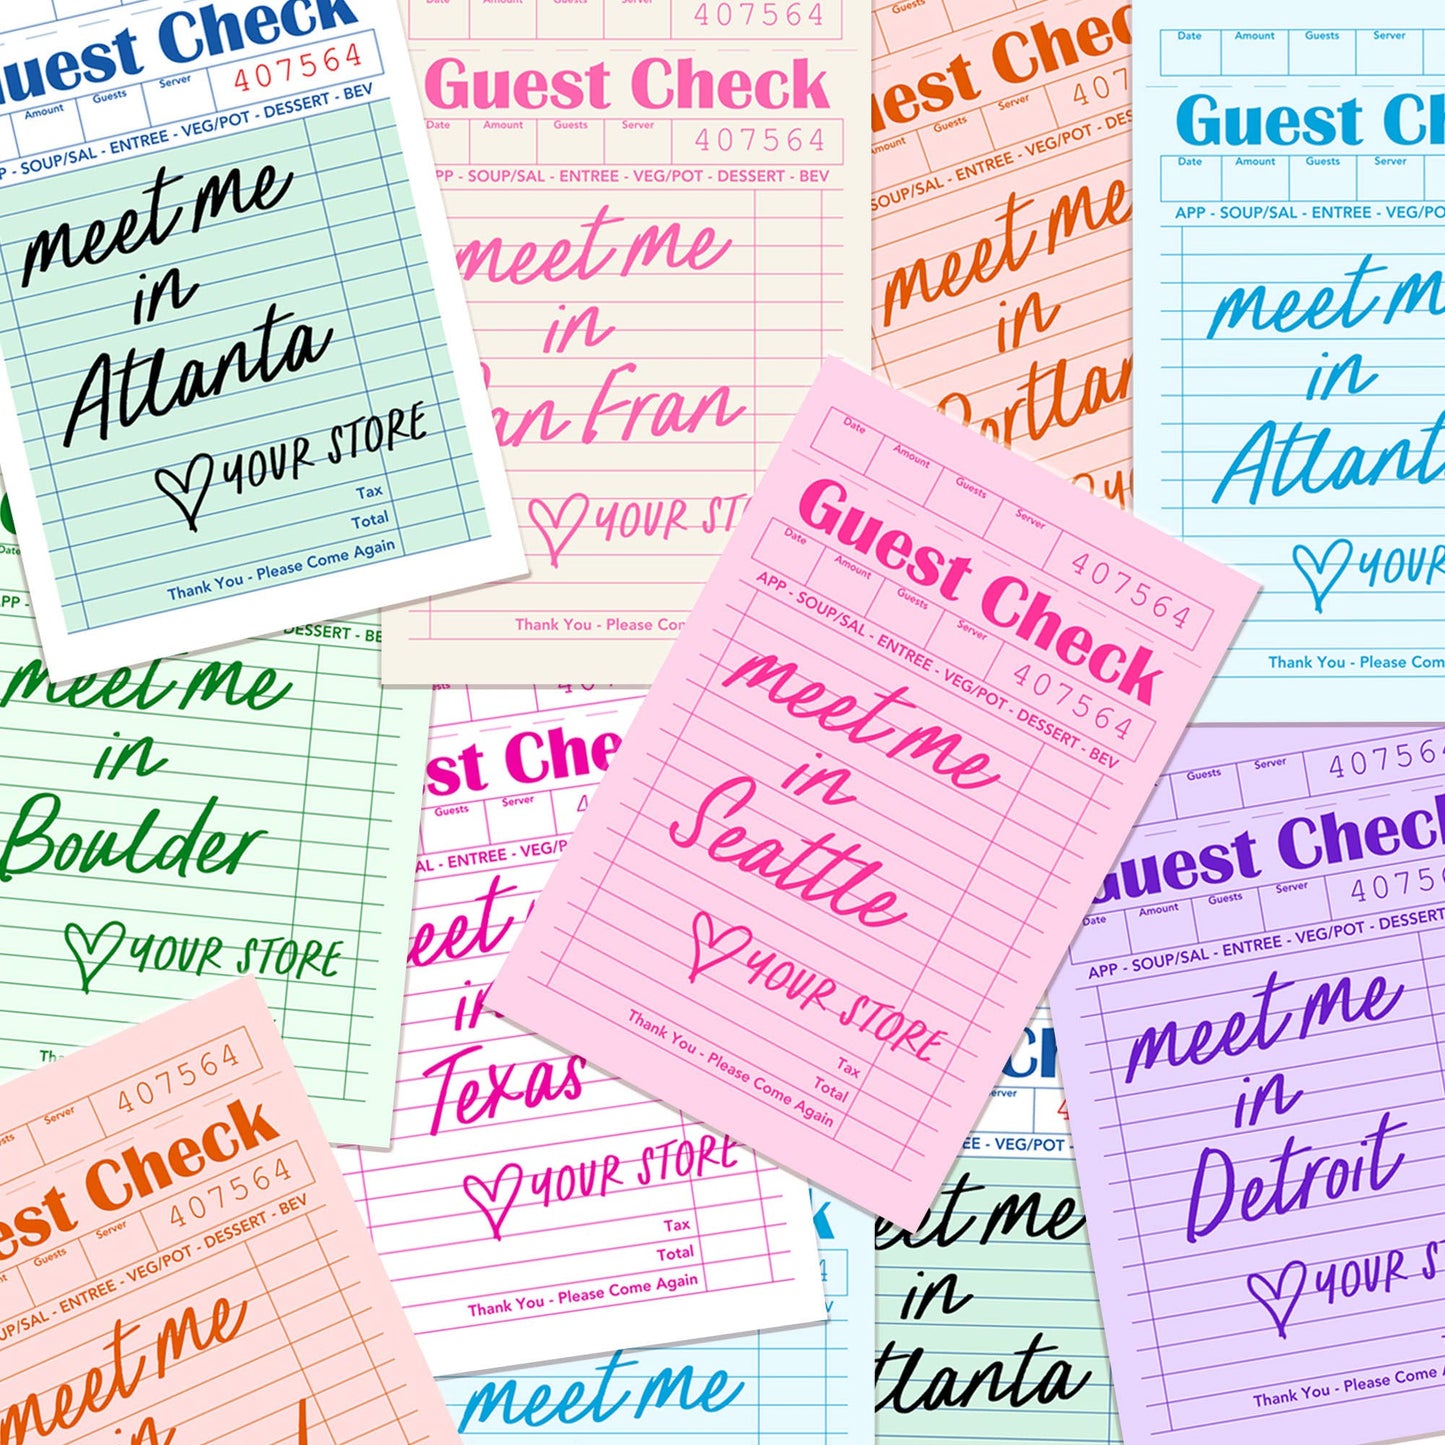 Guest Check
Amount Guests Server 407564
APP - SOUP/SAL - ENTREE - VEG/POT - DESSERT - BEV
meet me
in
Atlanta
♡ YOUR STORE
Tax
Total
Thank You - Please Come Again
Amount Guests Server 407564
Guest Check
Date Amount Guests Server 407564
APP - SOUP/SAL - ENTREE - VEG/POT - DESSERT - BEV
meet me
in
San Fran
♡ YOUR ST
Thank You - Please Com
Guests
Guest Chec
Amount Guests Server 407
SOUP/SAL - ENTREE - VEG/POT - DESS
meet me
in
Portlan
Date Amount Guests Server
Guest Ch
Date Amount Guests Server
APP - SOUP/SAL - ENTREE - VEG/PO
meet m
in
Atlant
♡ YOUR
Thank You - Please Com
Date
DESSERT - BE
meet me
in
Boulder
♡ YOUR STORE
Guest Che
Guests Server
SAL - ENTREE - VEG/P
meet
in
Texas
♡ YOUR STORE
Tax
Total
Thank You - Please Come Again
Date Amount Guests Server 407564
Guest Check
Date Amount Guests Server 407564
APP - SOUP/SAL - ENTREE - VEG/POT - DESSERT - BEV
meet me
in
Seattle
♡ YOUR STORE
Tax
Total
Thank You - Please Come Again
Guests Server 407564
Guest Check
Date Amount Guests Server 4075
APP - SOUP/SAL - ENTREE - VEG/POT - DESSERT
meet me
in
Detroit
♡ YOUR S
Thank You - Please Come
Server 407564
Guest Check
Guests Server 407564
SOUP/SAL - ENTREE - VEG/POT - DESSERT - BEV
meet me
in
meet me
Server
ENTREE - VEG/POT
meet me
in
Atlanta